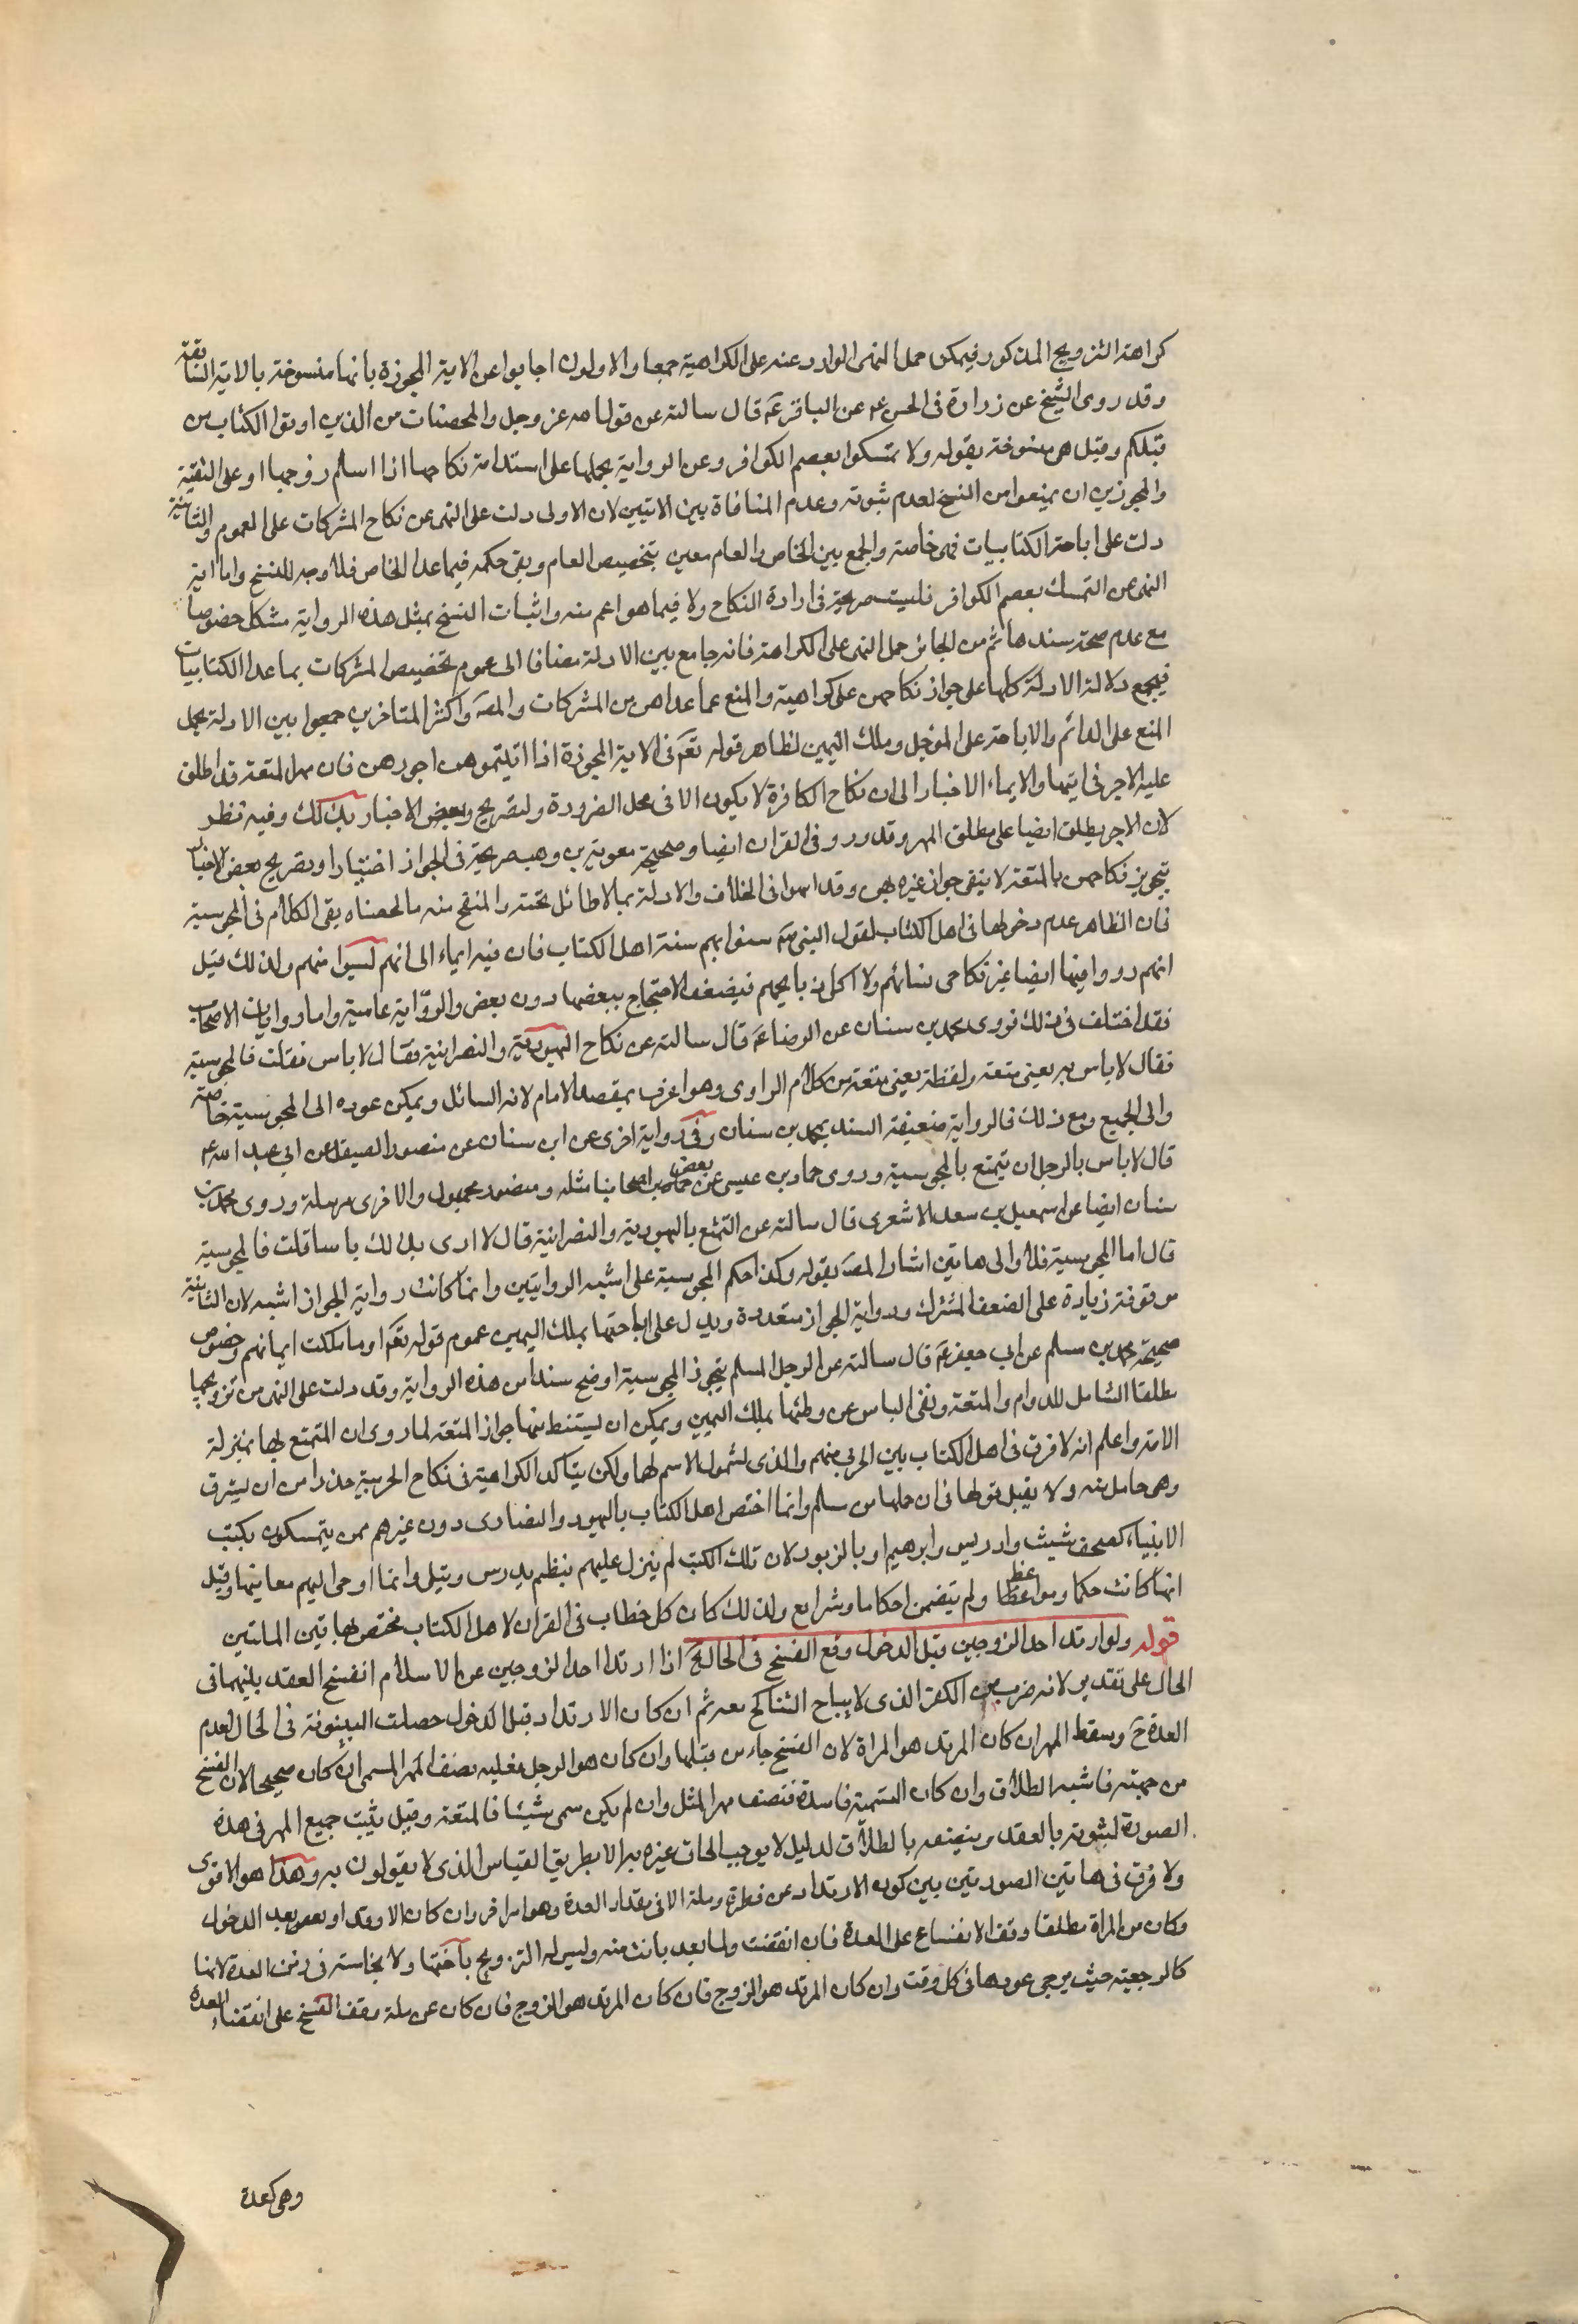 كراهته التزويج المذكور فيمكن حمل النهى الوارد عنه على الكراهية جمعا والاولون اجابوا عن الاية المجوزة بانها منسوخة بالاية السابقة
وقد روى الشيخ عن زرارة فى الحسن عن الباقر عم قال سالته عن قول الله عز وجل والمحصنات من الذين اوتوا الكتاب من
قبلكم وقيل هى منسوخة بقوله ولا تمسكوا بعصم الكوافر وعن الرواية بحملها على استدامة نكاحها اذا اسلم زوجها او على التقية
وللمجوزين ان يمنعوا من النسخ لعدم ثبوته وعدم المنافاة بين الايتين لان الاولى دلت على النهى عن نكاح المشركات على العموم والثانية
دلت على اباحة الكتابيات فهى خاصة والجمع بين الخاص والعام معين بتخصيص العام وبقى حكمه فيما عدا الخاص فلا وجه للنسخ واما اية
النهى عن التمسك بعصم الكوافر فليست صريحة فى ارادة النكاح ولا فيما هو اعم منه واثبات النسخ بمثل هذه الرواية مشكل خصوصا
مع عدم صحة سندها ثم من الجائز حمل النهى على الكراهة فانه جامع بين الادلة مضافا الى عموم تخصيص المشركات بما عدا الكتابيات
فيجمع دلالة الادلة كلها على جواز نكاحهن على كراهية والمنع عما عداهن من المشركات والمصَ واكثر المتاخرين جمعوا بين الادلة بحمل
المنع على الدائم والاباحة على المؤجل وملك اليمين لظاهر قوله تعَ فى الاية المجوزة اذا اتيتموهن اجورهن فان مهر المتعة قد اطلق
عليه الاجر فى ايتها والايماء الاخبار الى ان نكاح الكافرة لا يكون الا فى محل الضرورة ولتصريح وبعض الاخبار بذلك وفيه نظر
لان الاجر يطلق ايضا على مطلق المهر وقد ورد فى القران ايضا وصحيحة معوية بن وهب صريحة فى الجواز اختيارا وتصريح بعض الاخبار
بتجويز نكاحهن بالمتعة لا ينفى جواز غيره بهن وقد اسهوا فى الخلاف والادلة بما لا طائل تحته والمنقح منه ما لخصناه بقى الكلام فى المجوسية
فان الظاهر عدم دخولها فى اهل الكتاب لقول النبى صَ سنوا بهم سنة اهل الكتاب فان فيه ايماء الى انهم ليسوا منهم ولذلك قيل
انهم رووا فيها ايضا غير ناكحى نسائهم ولا اكلى ذبايحهم فيضعف الاحتجاج ببعضها دون بعض والرواية عامية واما روايات الاصحاب
فقد اختلف فى ذلك فروى محمد بن سنان عن الرضا عَ قال سالته عن نكاح اليهودية والنصرانية فقال لا باس فقلت فالمجوسية
فقال لا باس به يعنى متعة ولفظة يعنى متعة من كلام الراوى وهو اعرف بمقصد الامام لانه السائل ويمكن عوده الى المجوسية خاصة
والى الجميع ومع ذلك فالرواية ضعيفة السند بمحمد بن سنان وفى رواية اخرى عن ابن سنان عن منصور الصيقل عن ابى عبد الله عم
قال لا باس بالرجل ان يتمتع بالمجوسية وروى حماد بن عيسى عن بعض اصحابنا مثله ومنصور مجهول والاخرى مرسلة وروى محمد بن
سنان ايضا عن اسمعيل بن سعد الاشعرى قال سالته عن التمتع باليهودية والنصرانية قال لا ارى بذلك باسا قلت فالمجوسية
قال اما المجوسية فلا والى هاتين اشار المصَ بقوله وكذا حكم المجوسية على اشبه الروايتين وانما كانت رواية الجواز اشبه لان الثانية
موقوفة زيادة على الضعف المشترك ورواية الجواز متعددة ويدل على اباحتها بملك اليمين عموم قوله تعَ او ما ملكت ايمانهم وخصوص
صحيحة محمد بن مسلم عن ابى جعفر عَ قال سالته عن الرجل المسلم يتجوز المجوسية اوضح سندا من هذه الرواية وقد دلت على النهى من تزويجها
مطلقا الشامل للدوام والمتعة ونفى الباس عن وطئها بملك اليمين ويمكن ان يستنبط منها جواز المتعة لما روى ان المتمتع بها بمنزلة
الامة واعلم انه لا فرق فى اهل الكتاب بين الحربى منهم والذمى لشمول الاسم لها ولكن يتاكد الكراهية فى نكاح الحربية حذرا من ان يسترق
وهى حامل منه ولا يقبل قولها فى ان حملها من مسلم وانما اختص اهل الكتاب باليهود والنصارى دون غيرهم ممن يتمسكون بكتب
الانبياء كصحف شيث وادريس وابرهيم او بالزبور لان تلك الكتب لم ينزل عليهم بنظم يدرس ويتلى وانما اوحى اليهم معانيها وقيل
انها كانت حكما ومواعظا ولم يتضمن احكاما وشرايع ولذلك كان كل خطاب فى القران لاهل الكتاب مختص بهاتين الملتين
قوله ولو ارتد احد الزوجين قبل الدخول وقع الفسخ فى الحال الخ اذا ارتد احد الزوجين عن الاسلام انفسخ العقد بينهما فى
الحال على تقدير لانه ضرب من الكفر الذى لا يباح التناكح معه ثم ان كان الارتداد قبل الدخول حصلت البينونة فى الحال لعدم
العدة حَ وسقط المهر ان كان المرتد هو المراة لان الفسخ جاء من قبلها وان كان هو الرجل فعليه نصف المهر المسمى ان كان صحيحا لان الفسخ
من جهته فاشبه الطلاق وان كان التسمية فاسدة فنصف مهر المثل وان لم يكن سمى شيئا فالمتعة وقيل يثبت جميع المهر فى هذه
الصورة لثبوته بالعقد وينصفه بالطلاق لدليل لا يوجب الحاق غيره به الا بطريق القياس الذى لا يقولون به وهذا هو الاقوى
ولا فرق فى هاتين الصورتين بين كون الارتداد عن فطرة وملة الا فى مقدار العدة وهو امر اخر وان كان الارتداد بعد الدخول
وكان من المراة مطلقا وقف الانفساخ على العدة فان انقضت ولما يعد بانت منه وليس له التزويج باختها ولا بخامسة فى زمن العدة لانها
كالرجعية حيث يرجى عودها فى كل وقت وان كان المرتد هو الزوج فان كان المرتد هو الزوج فان كان عن ملة وقف الفسخ على انقضاء العدة
وهى كعدة